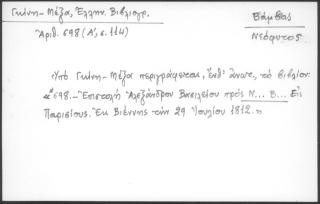 Γκίνη - Μέξα, Ἑλλην. Βιβλιογρ.
Ἀριθ. 698 (Α', σ. 114)
Βάμβας
Νεόφυτος
Ὑπὸ Γκίνη - Μέξα περιγράφεται, ἔνθ' ἄνωτ., τὸ βιβλίον:
«698. - Ἐπιστολὴ Ἀλεξάνδρου Βασιλείου πρὸς Ν... Β... Εἰς
Παρισίους. Ἐκ Βιέννης τὴν 29 Ἰουλίου 1812.»